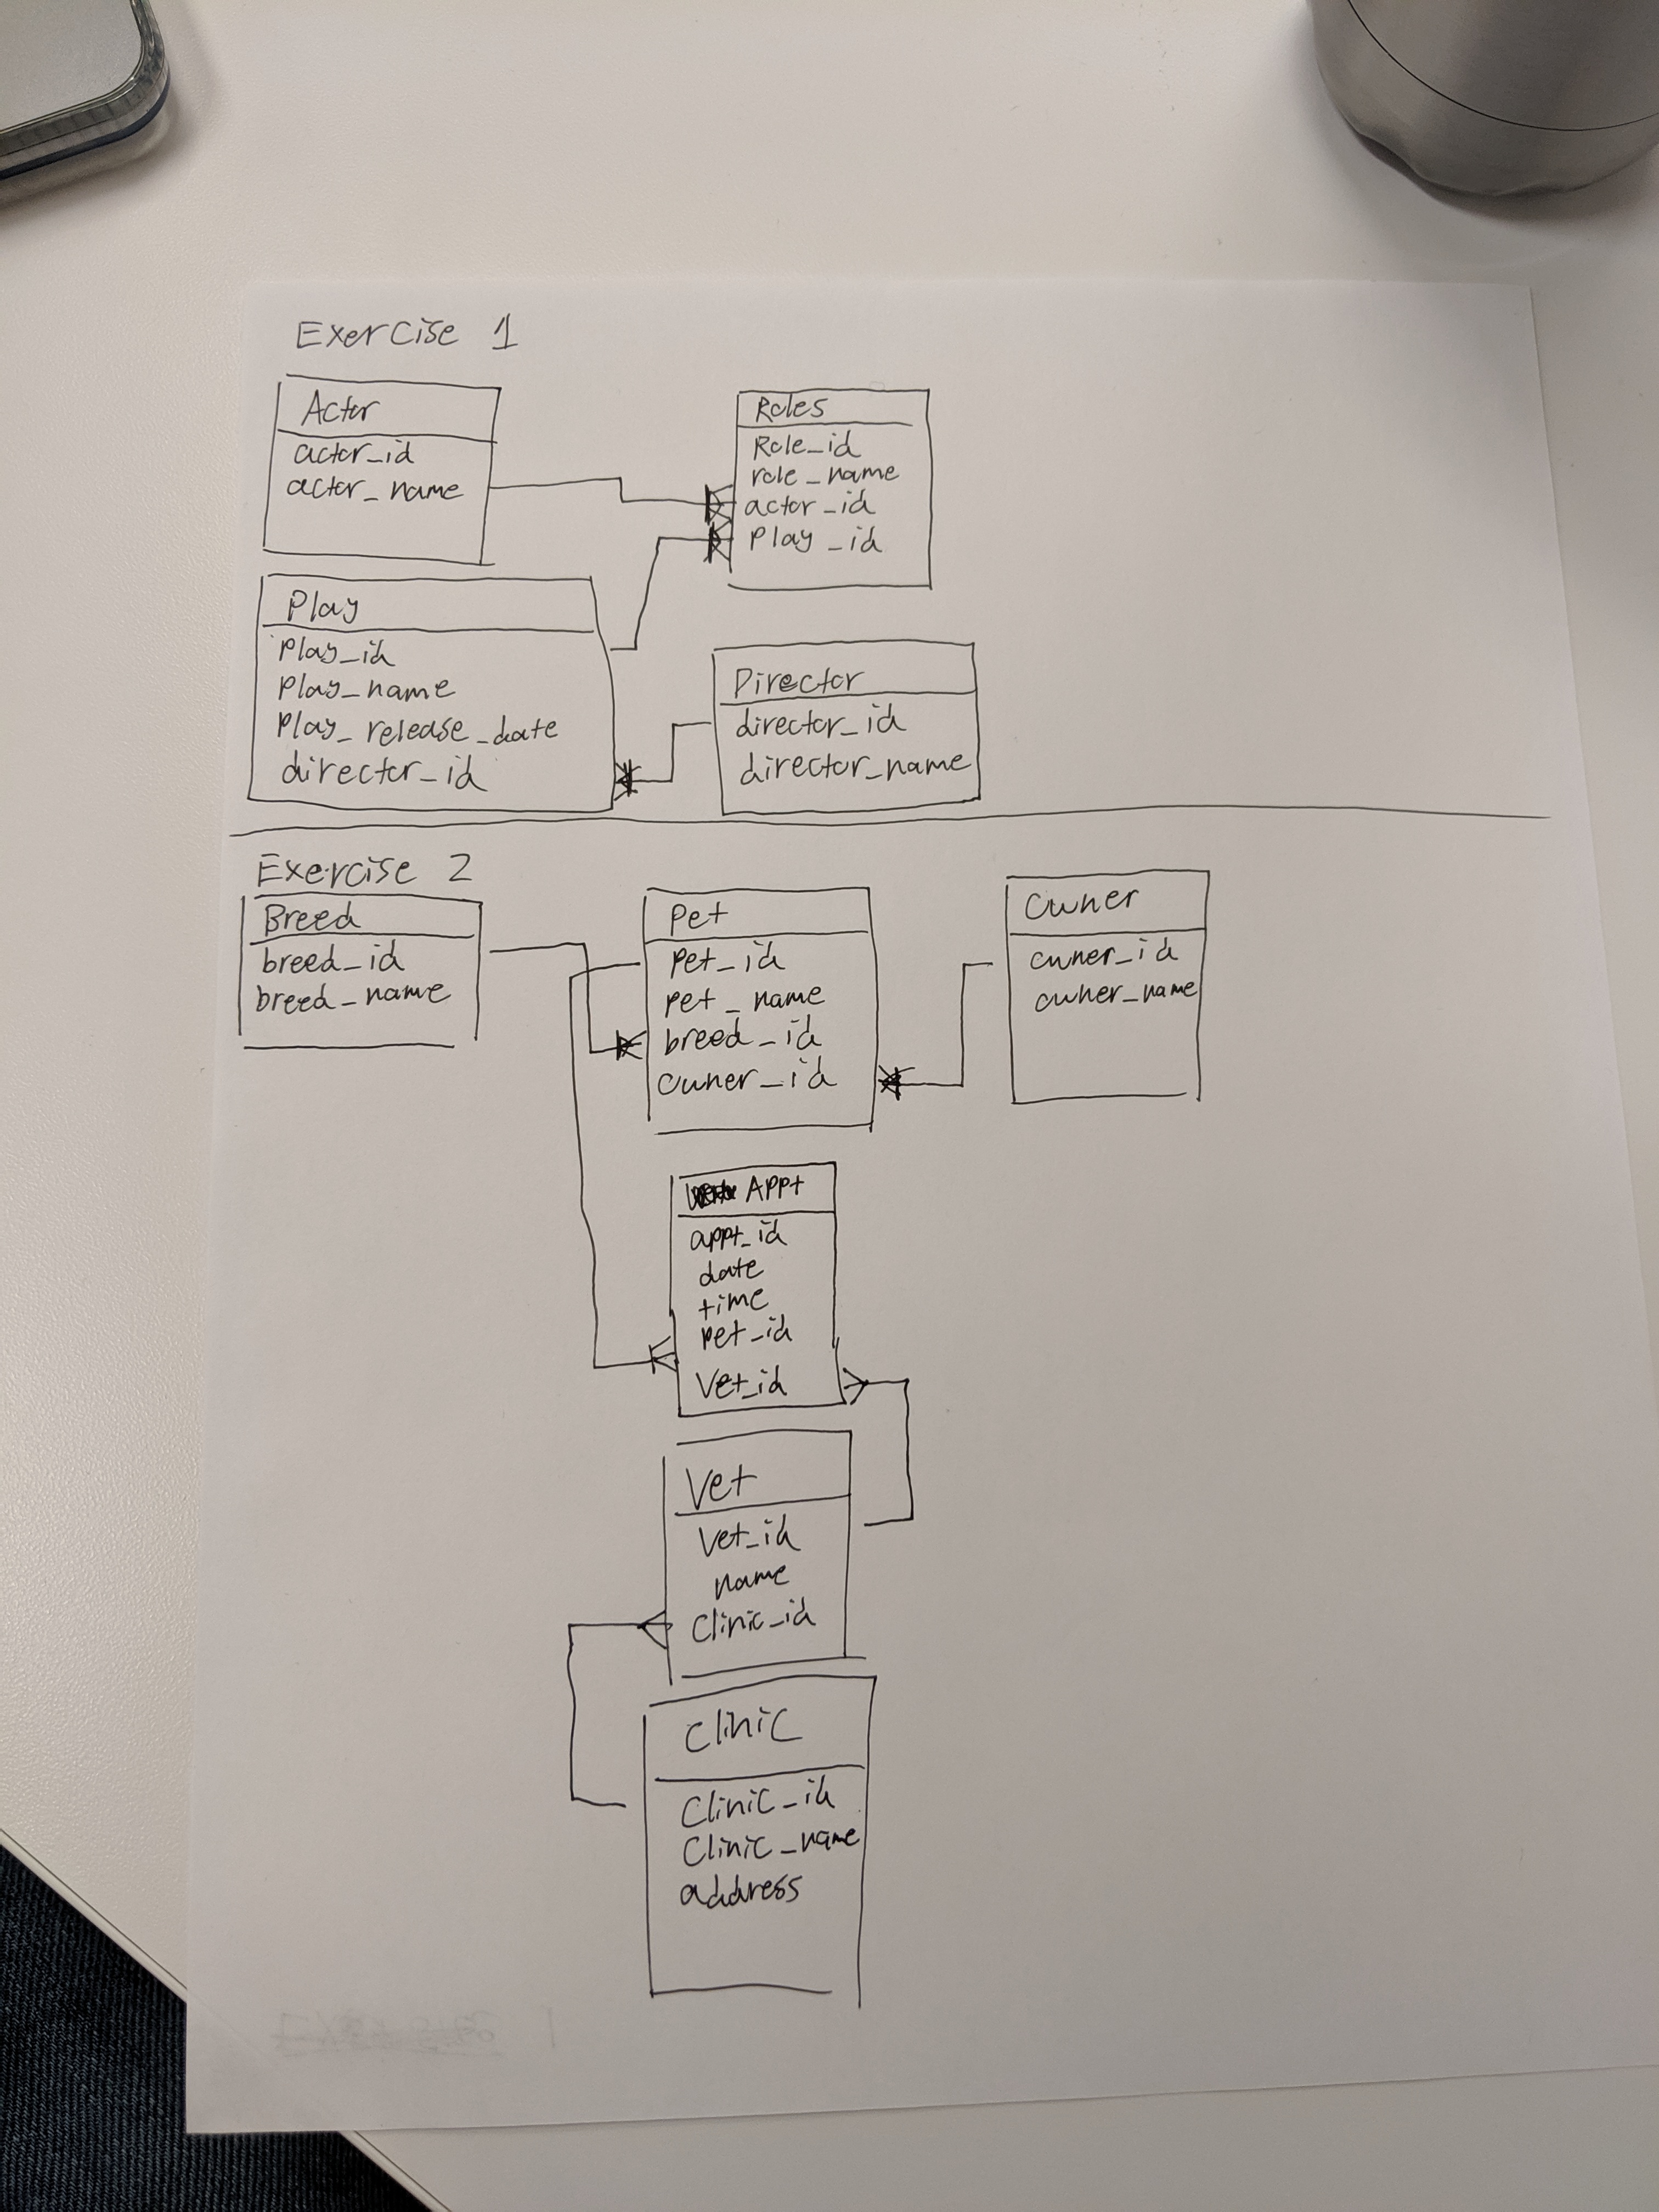 Exercise 1
Actor
actor_id
actor_name
Roles
Role_id
role_name
actor_id
Play_id
Play
Play_id
Play_name
Play_release_date
director_id
Director
director_id
director_name
Exercise 2
Breed
breed_id
breed_name
Pet
pet_id
pet_name
breed_id
owner_id
Owner
owner_id
owner_name
APPt
appt_id
date
time
pet_id
Vet_id
Vet
Vet_id
name
Clinic_id
Clinic
Clinic_id
Clinic_name
address